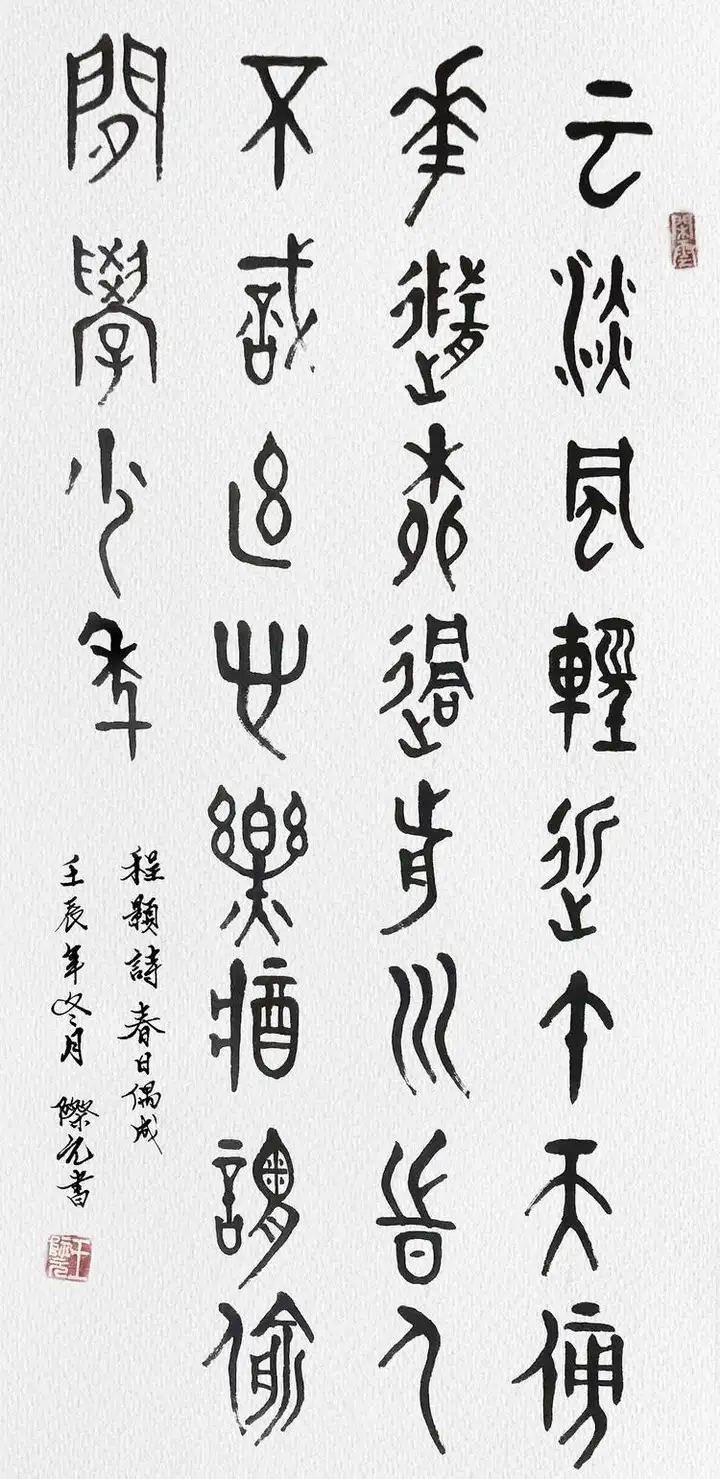 云淡風輕近午天傍
華隨柳過前川旹人
不識予心樂將謂偷
閒學少年
程顥詩春日偶成
壬辰年冬月 際元書
閑雲